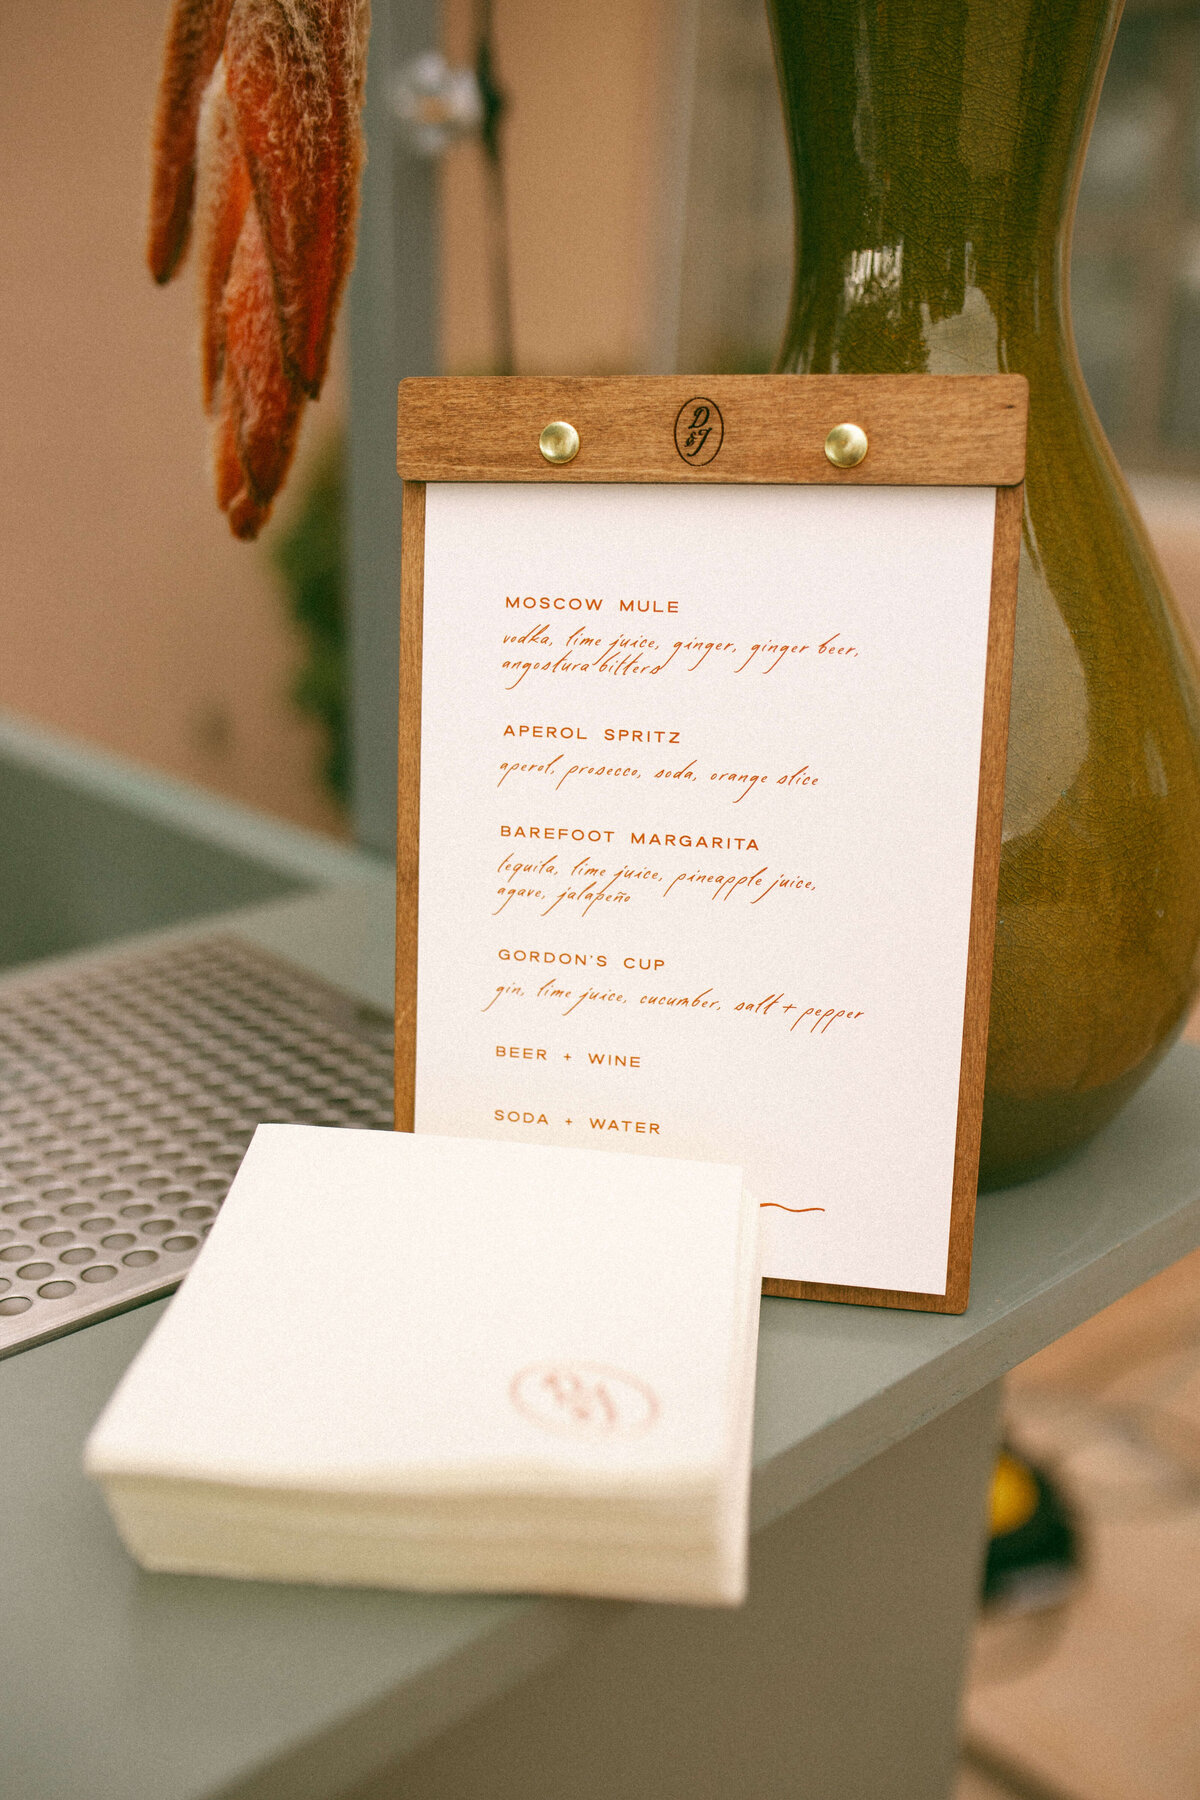 D
&J
MOSCOW MULE
vodka, lime juice, ginger, ginger beer,
angostura bitters
APEROL SPRITZ
aperol, prosecco, soda, orange slice
BAREFOOT MARGARITA
tequila, lime juice, pineapple juice,
agave, jalapeño
GORDON'S CUP
gin, lime juice, cucumber, salt + pepper
BEER + WINE
SODA + WATER
D
&J